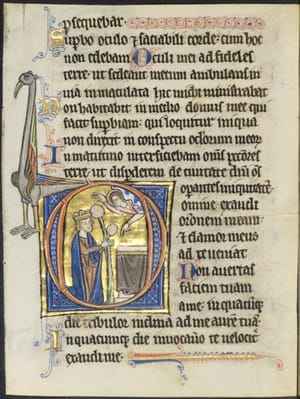 psequebar.
Supbo oculo & saciabili corde: cum hoc
non edebam. Oculi mei ad fideles
terre: ut sedeant mecum ambulans in
uia inmaculata hic michi ministrabat
Non habitabit in medio domus mee qui
facit supbiam: qui loquitur iniqua
non direxit in conspectu oculorum meoꝝ
In matutino interficiebam om̄s
terre: ut disperderem de ciuitate dn̄i om̄s
opantes iniquitatē
Domine exaudi
orōnem meam:
& clamor meus
ad te ueniat
Non auertas
faciem tuam
a me: in quacūq;
die tribulor inclina ad me aurē tuā
In quacumq; die inuocauero te uelocit̄
exaudi me.